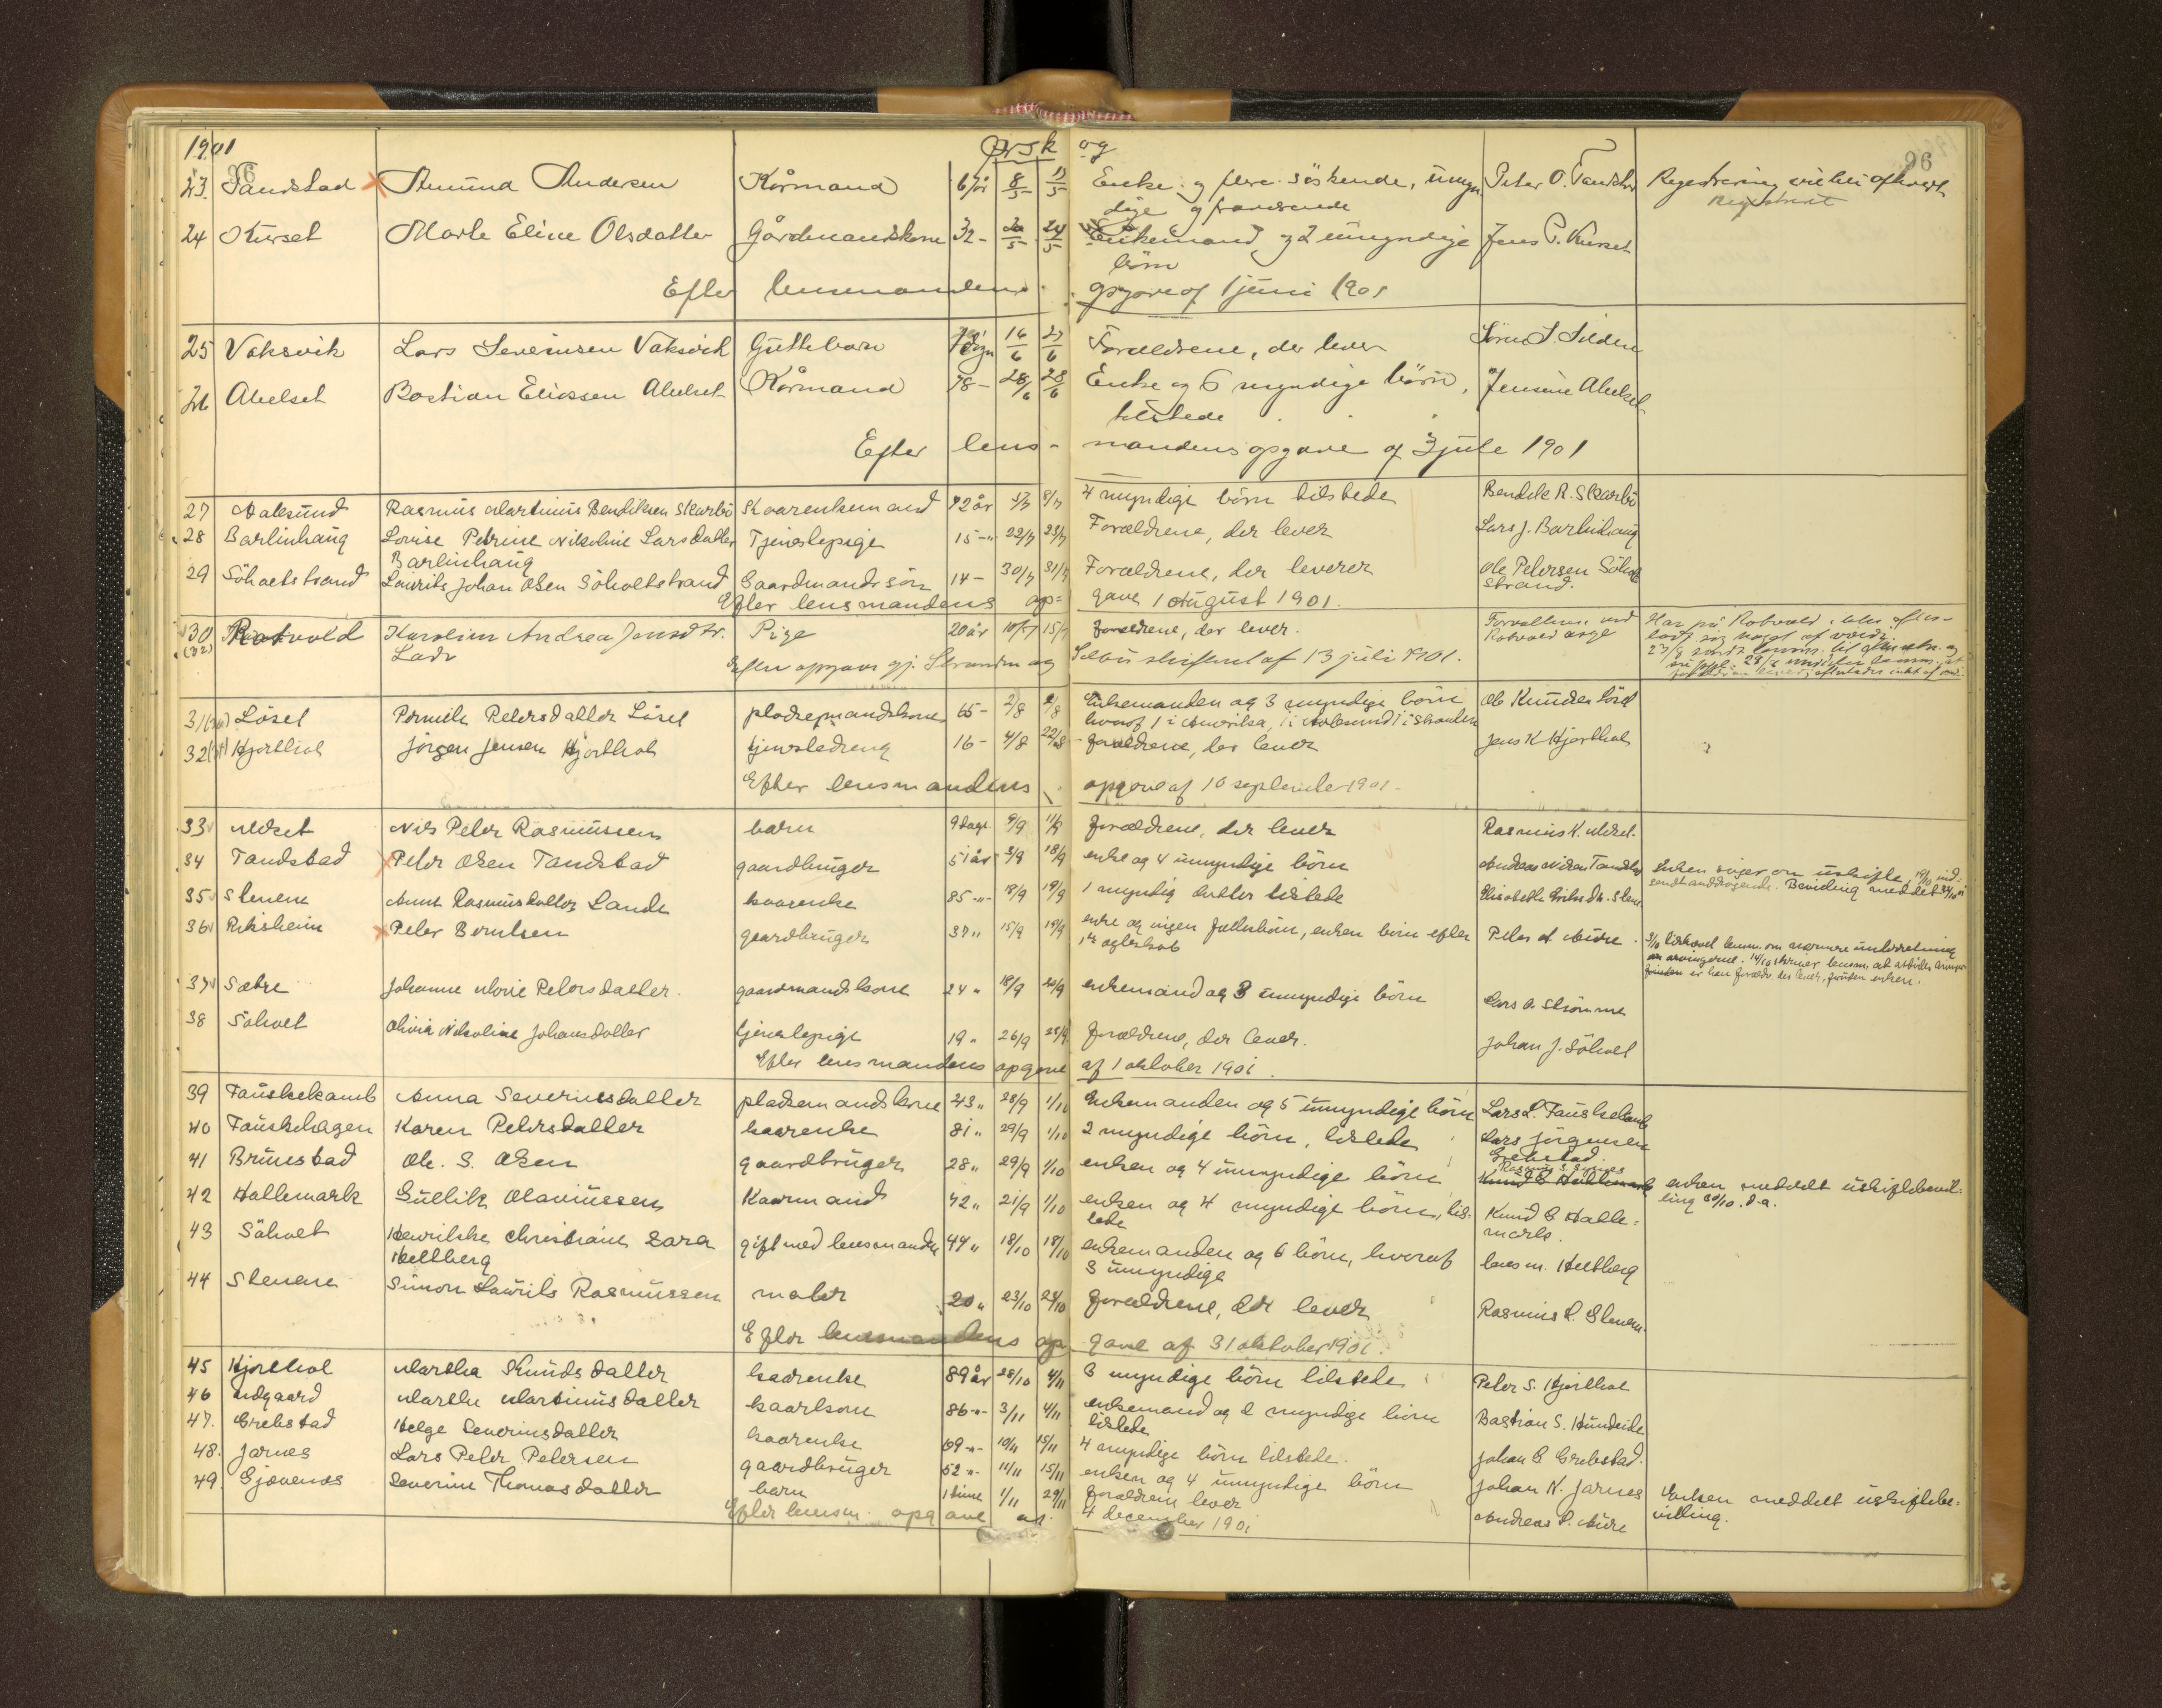 1901 Ørsk og
96 96
23. Tandstad Amund Andersen Kårmand 67 år 8/5 13/5 Enke og flere söskende, umyn Peter O. Tandstad Registrering
dige og fraværende Registreret
24 Kurset Marte Eline Olsdatter Gårdmandskone 32 - 20/5 24/5 Enkemand og 2 umyndige Jens P. Kurset
börn
Efter lensmandens opgave af 1 juni 1901
25 Vaksvik Lars Severinsen Vaksvik Guttebarn 16/6 27/6 Forældrene, der lever Sören S. Silden
26 Abelset Bastian Eliassen Abelset Kårmand 78 - 28/6 28/6 Enke og 6 myndige börn, Jensine Abelset
tilstede
Efter lens- mandens opgave af 3 juli 1901
27 Aalesund Rasmus Martinus Bendiksen Skarbö Kaarenkemand 72 år 5/7 8/7 4 myndige börn tilstede Bendik R. Skarbö
28 Barlinhaug Lovise Petrine Nikoline Larsdatter Tjenestepige 15 -"- 22/7 23/7 Forældrene, der lever Lars J. Barlinhaug
Barlinhaug
29 Söholtstrand Laurits Johan Olsen Söholtstrand Gaardmandssön 14 - 30/7 31/7 Forældrene, der leverer Ole Petersen Söholt
strand.
Efter lensmandens op= gave 1 August 1901.
30 (32) Rotvold Karoline Andrea Jensdtr. Pige 20 år 10/7 15/7 forældrene, der lever. Forvalteren ved Har på Rotvold ikke efter-
Lade Rotvold asyl ladt sig noget af værdi.
Efter opgave gj. Strinden og Selbu skifteret af 13 juli 1901. 23/8 sendt lensm. til
31 Lösel Pernille Petersdatter Lösel pladsemandskone 65 - 2/8 8/8 Enkemanden og 3 myndige börn Ole Knudsen Lösel
hvoraf 1 i Amerika, 1 i Aalesund 1 i Stranden
32 Hjorthol Jörgen Jensen Hjorthol tjenestedreng 16 - 4/8 22/8 forældrene, der lever Jens K Hjorthol
Efter lensmandens opgave af 10 september 1901.
33 Melset Nils Peter Rasmussen barn 9 dage 9/9 11/9 forældrene, der lever Rasmus K. Melset.
34 Tandstad Peter Olsen Tandstad gaardbruger 51 år 3/9 18/9 enke og 4 umyndige börn Andreas Nilsen Tandstad Enken söger om uskifte, 19/10 ind-
sendt anddragende. Bevilling meddelt 24/10
35 Stenene Anne Rasmusdatter Lande kaarenke 85 -"- 18/9 19/9 1 myndig datter tilstede Elisabeth Eriksdtr. Stene
36 Riksheim Peter Berntsen gaardbruger 37 " 15/9 19/9 enke og ingen fællesbörn, enken börn efter Peter A Aure. 3/10 tilskrevet lensm. om nærmere underretning
1ste ægteskab om arvingerne. 14/10 skriver lensm. at
37 Sætre Johanne Marie Petersdatter. gaardmandskone 24 " 18/9 20/9 enkemand og 3 umyndige börn Lars O. Strömme
38 Söholt Olivia Nikoline Johansdatter tjenestepige 19 " 26/9 28/9 forældrene, der lever. Johan J. Söholt
Efter lensmandens opgave af 1 oktober 1901.
39 Fauskekamb Anna Severinsdatter pladsemandskone 43 " 28/9 1/10 Enkemanden og 5 umyndige börn Lars L. Fauskekamb
40 Fauskehagen Karen Petersdatter kaarenke 81 " 29/9 1/10 2 myndige börn, tilstede Lars Jörgensen
Grebstad.
41 Brunstad Ole. S. Olsen gaardbruger 28 " 29/9 1/10 enken og 4 umyndige börn Rasmus S. Knud E Hallemark enken meddelt uskiftebevil-
ling 30/10. d.a.
42 Hallemark Gullik Olaviussen Kaarmand 72 " 21/9 1/10 enken og 4 myndige börn, til- Knud E Halle=
stede mark.
43 Söholt Henrikke Christiane Zara gift med lensmanden 44 " 18/10 18/10 enkemanden og 6 börn, hvoraf lensm. Heltberg
Heltberg 3 umyndige
44 Stenene Simon Laurits Rasmussen maler 20 " 23/10 24/10 forældrene, der lever Rasmus L. Stenene.
Efter lensmandens op gave af 31 oktober 1901.
45 Hjorthol Martha Knudsdatter kaarenke 89 år 28/10 4/11 3 myndige börn tilstede Peter S. Hjorthol
46 Midgaard Marthe Martinusdatter kaarkone 86 -"- 3/11 4/11 enkemand og 2 myndige börn Bastian S. Hundeide
tilstede
47. Grebstad Helge Severinsdatter kaarenke 69 -"- 10/11 15/11 4 myndige börn tilstede. Johan E Grebstad.
48. Jarnes Lars Peter Petersen gaardbruger 52 -"- 11/11 15/11 enken og 4 umyndige börn Johan N. Jarnes Enken meddelt uskiftebe=
villing.
49 Gjævenes Severine Thomasdatter barn 1 time 1/11 29/11 forældrene lever Andreas P. Aure
Efter lensm. opgave af. 4 december 1901